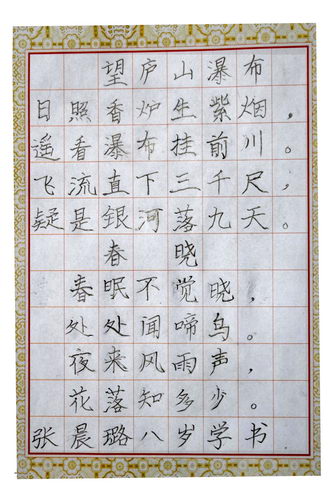 望庐山瀑布
日照香炉生紫烟，
遥看瀑布挂前川。
飞流直下三千尺，
疑是银河落九天。
春晓
春眠不觉晓，
处处闻啼鸟。
夜来风雨声，
花落知多少。
张晨璐八岁学书